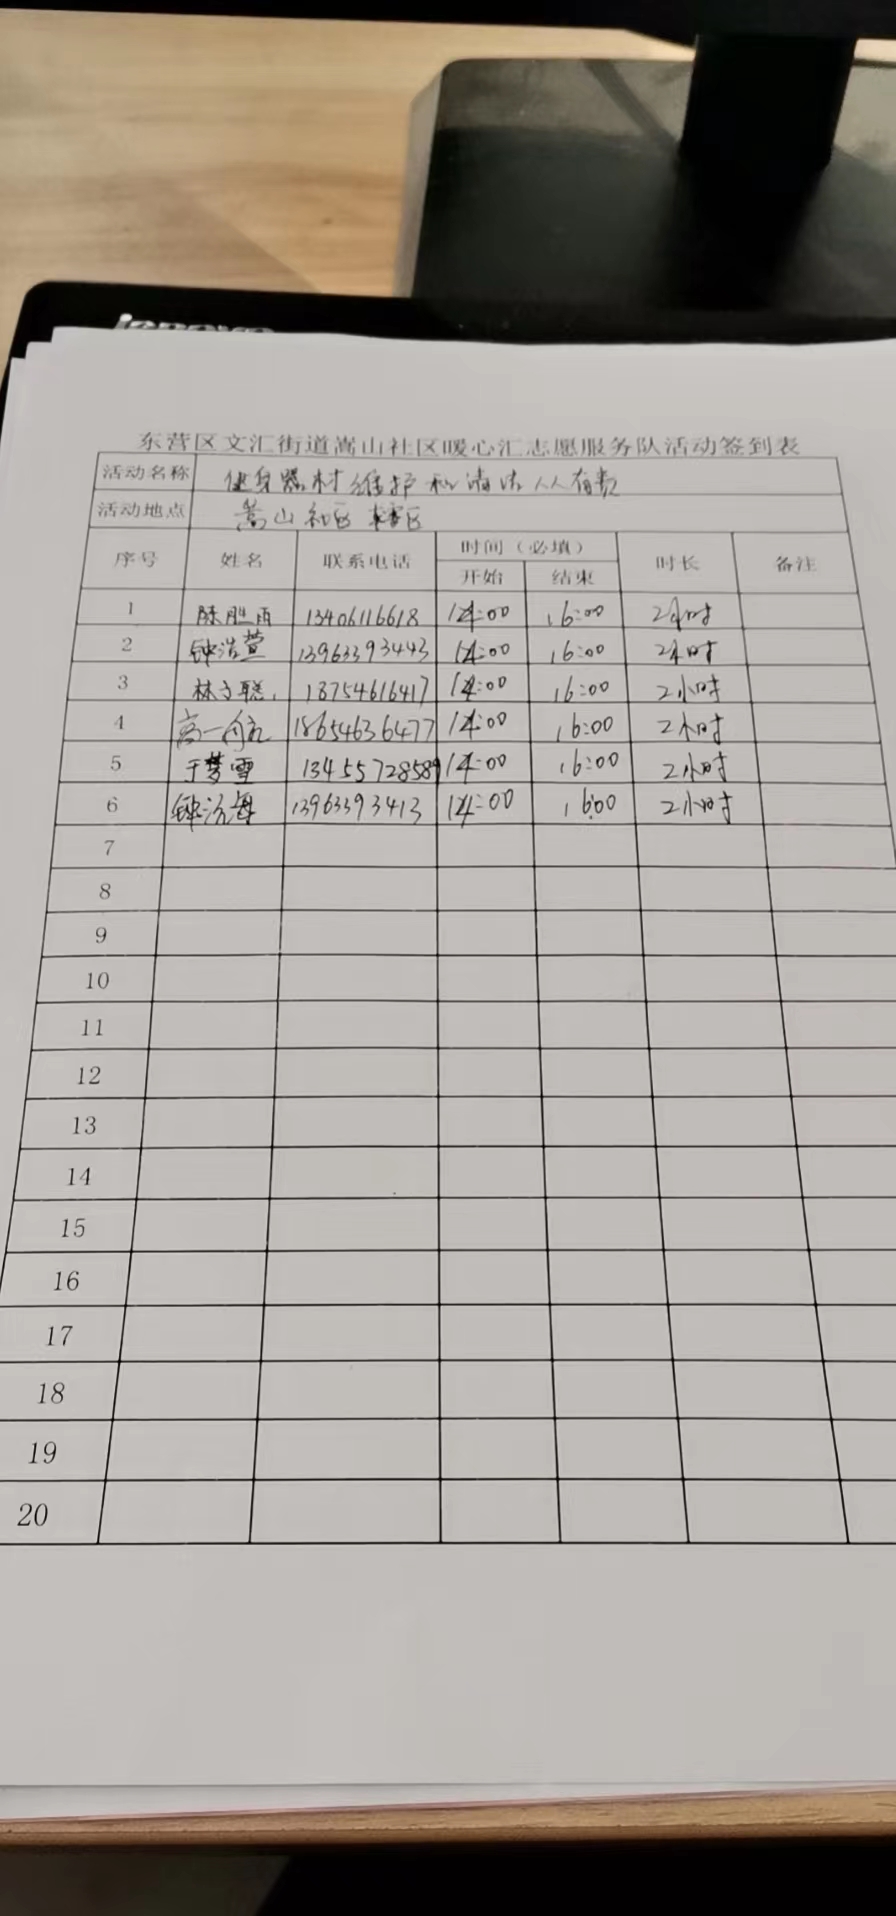 lenovo
东营区文汇街道嵩山社区暖心汇志愿服务队活动签到表
活动名称 健身器材维护和清洁人人有责
活动地点 嵩山社区辖区
序号 姓名 联系电话 时间（必填） 时长 备注
开始 结束
1 陈胜雨 13406116618 14:00 16:00 2小时
2 钟浩萱 13963393443 14:00 16:00 2小时
3 林子聪 18754616417 14:00 16:00 2小时
4 高一航 18654636477 14:00 16:00 2小时
5 于梦雪 13455728589 14:00 16:00 2小时
6 13963393413 14:00 16:00 2小时
7
8
9
10
11
12
13
14
15
16
17
18
19
20